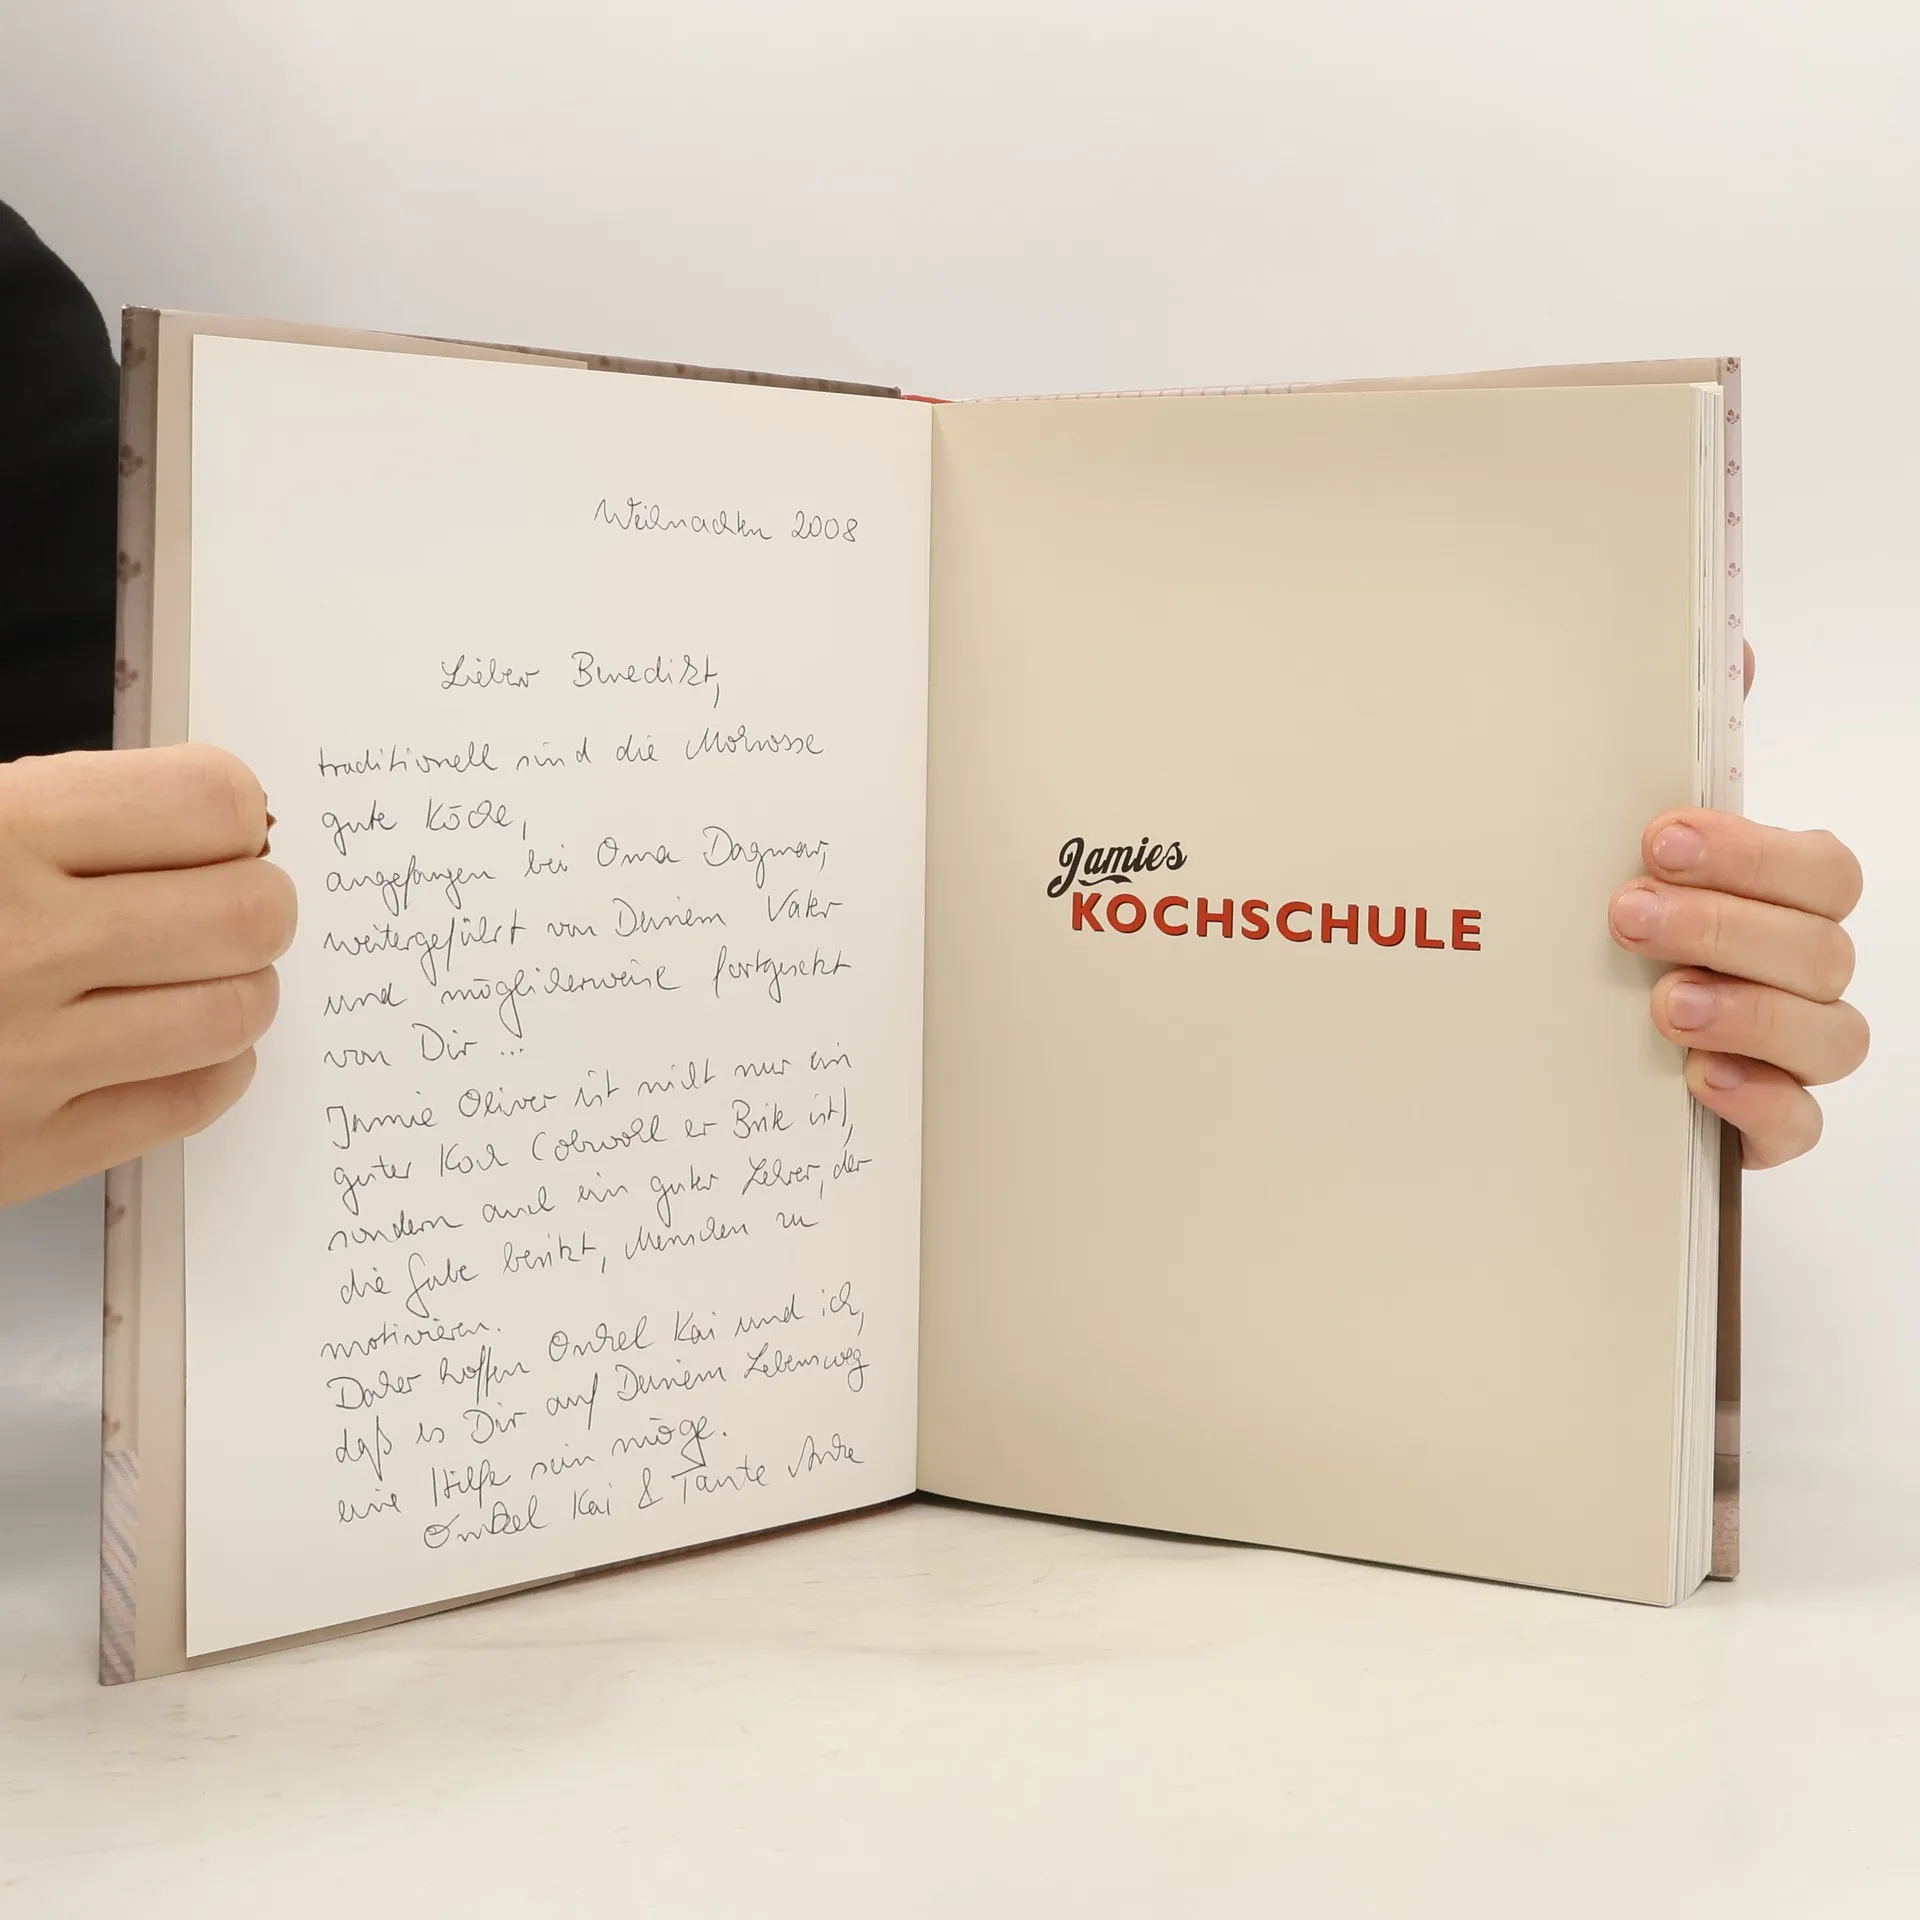 Weihnachten 2008
Lieber Benedikt,
traditionell sind die
gute Köche,
angefangen bei Oma Dagmar,
weitergeführt von Deinem Vater
und möglicherweise fortgesetzt
von Dir ...
Jamie Oliver ist nicht nur ein
guter Koch (obwohl er Brite ist),
sondern auch ein guter Lehrer, der
die Gabe besitzt, Menschen zu
motivieren.
Daher hoffen Onkel Kai und ich,
daß es Dir auf Deinem Lebensweg
eine Hilfe sein möge.
Onkel Kai & Tante
Jamies
KOCHSCHULE